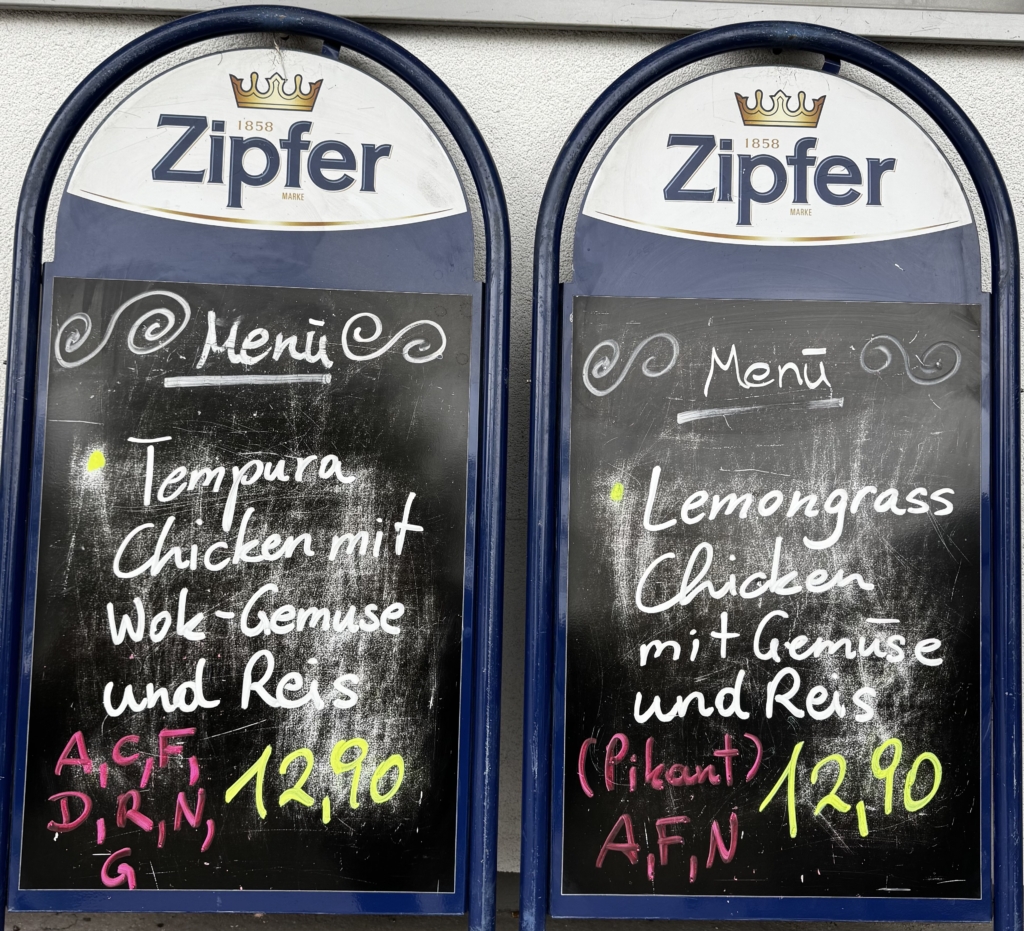 1858
Zipfer
MARKE
Menū
Tempura
Chicken mit
Wok-Gemuse
und Reis
A, C, F,
D, R, N,
G
12,90
1858
Zipfer
MARKE
Menū
Lemongrass
Chicken
mit Gemūse
und Reis
(Pikant)
A, F, N
12,90